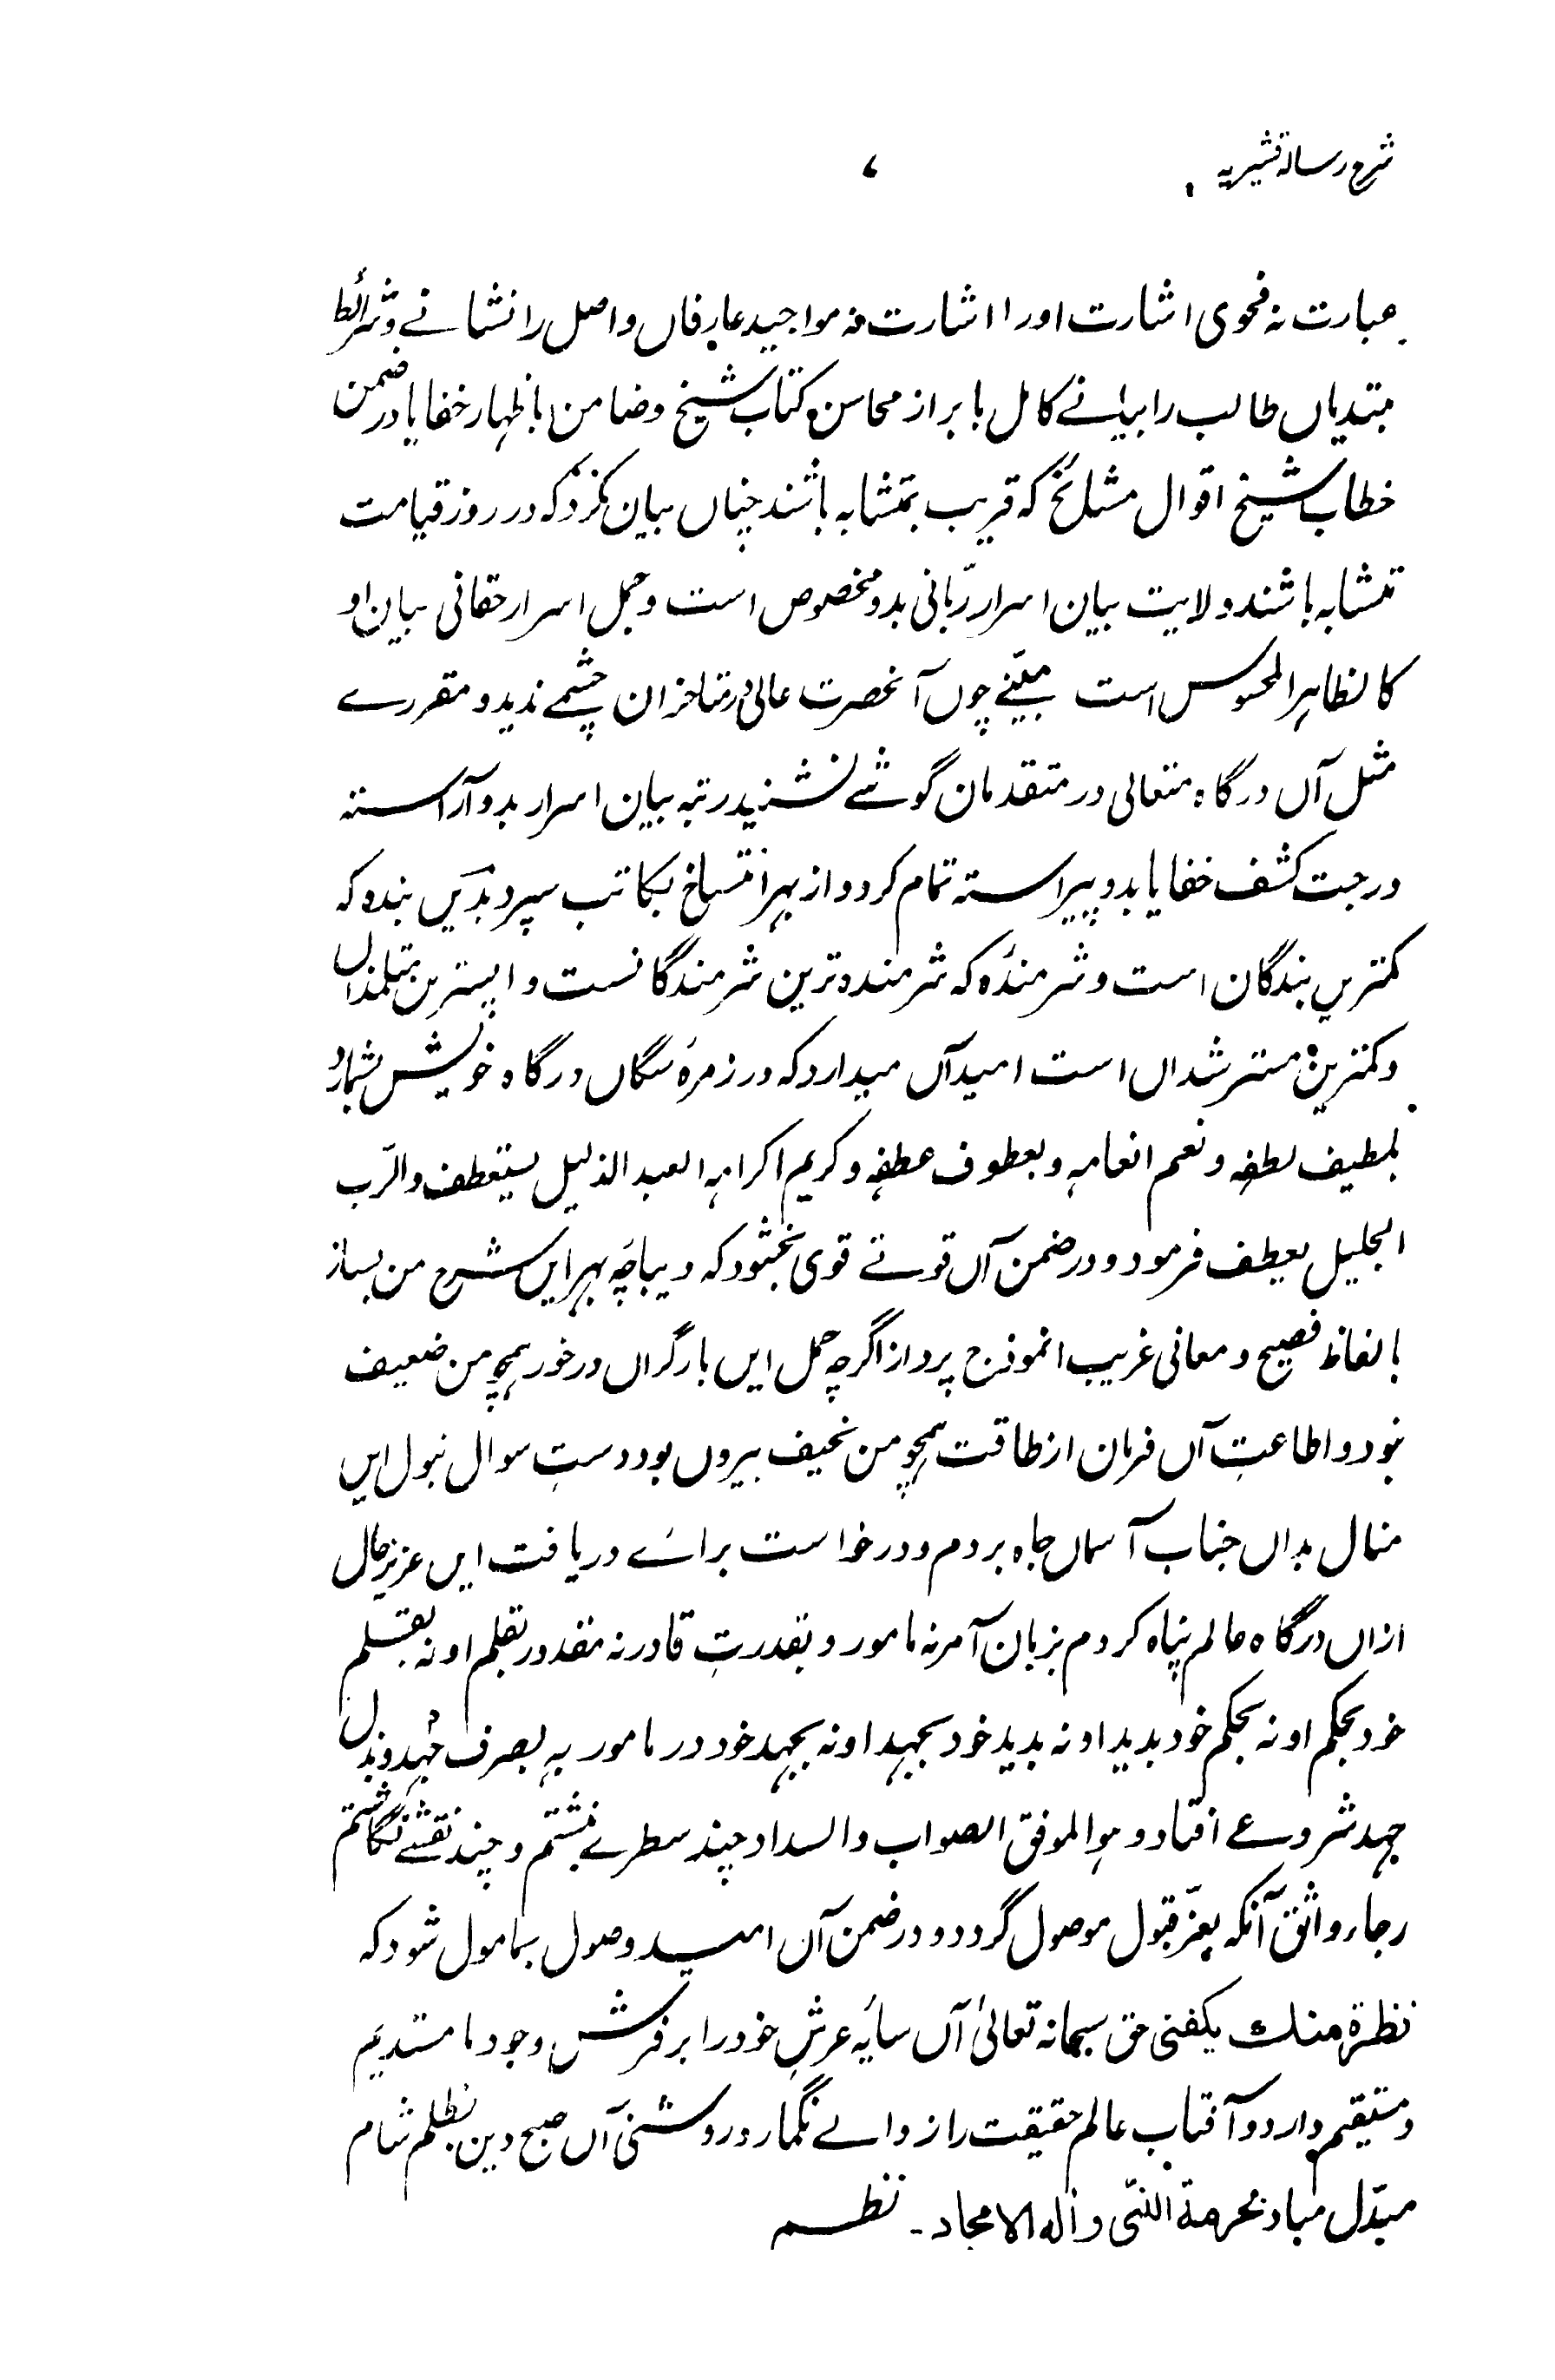 شرح رسالۂ قشیریہ ۷
عبارت نہ فحوی اشارت اورا اشارت نہ مواجید عارفاں واصل را نشانے و شرائط
مبتدیاں طالب را بیانے کامل با براز محاسن کتاب شیخ و ضامن باظہار خفایا در ضمن
خطاب شیخ اقوال مشائخ کہ قریب بتمشابہ باشند چناں بیان نکرد کہ در روز قیامت
تمشابہ باشند ولایت بیان اسرار ربّانی بدو مخصوص است و حمل اسرار حقانی بیان او
کالظاہر المحسوس است مبیّنے چوں آنحضرت عالی در متاخران چشمے ندید و مقررے
مثل آں درگاہ متعالی در متقدمان گوشے نشنید رتبہ بیان اسرار بدو آراستہ
درجت کشف خفایا بدو پیراستہ تمام کرد و از بہر انتساخ بکاتب سپرد بدیں بندہ کہ
کمترین بندگان است و شرمندۂ کہ شرمندہ ترین شرمندگانست و اپسترین متلمذاں
و کمترین مسترشداں است امید آں میدارد کہ در زمرۂ سگاں درگاہ خویش شمارد
بلطیف لطفہ و نعم انعامہ و بعطوف عطفہ و کریم اکرامہ العبد الذلیل یستعطف والرّب
الجلیل یعطف فرمود و در ضمن آں قوتے قوی بخشود کہ دیباچۂ بہر ایں شرح من بساز
بالفاظ فصیح و معانی غریب انموذج پرداز اگرچہ حمل ایں بار گراں در خور ہمچو من ضعیف
نبود و اطاعتِ آں فرمان از طاقت ہمچو من نحیف بیروں بود دستِ سوال نبول ایں
منال بداں جناب آسماں جاہ بردم و درخواست برائے دریافت ایں عزیز حال
ازاں درگاہ عالم پناہ کردم بزبان آمر نہ مامور و بقدرتِ قادر نہ مقدور بقلم او نہ بقلم
خود بحکم او نہ بحکم خود بدید او نہ بدید خود بجہد او نہ بجہد خود در مامور بہ بصرف جُہد و بذل
جہد شروعے افتاد و ہو الموفق الصواب والسداد چند سطرے نبشتم و چند نقشے نگاشتم
رجاء واثق آنکہ بعزّ قبول موصول گردد و در ضمن آں امید وصول بمامول شود کہ
نظرۃ منک یکفنی حق سبحانہ تعالیٰ آں سایۂ عرشِ خود را بر فرش وجود ما مستدیم
و مستقیم دارد و آفتاب عالم حقیقت را زوالے نگمارد و روشنیٔ آں صبح دین بظلم شام
مبدّل مباد بحرمۃ النبّی وآلہ الامجاد۔ نظم